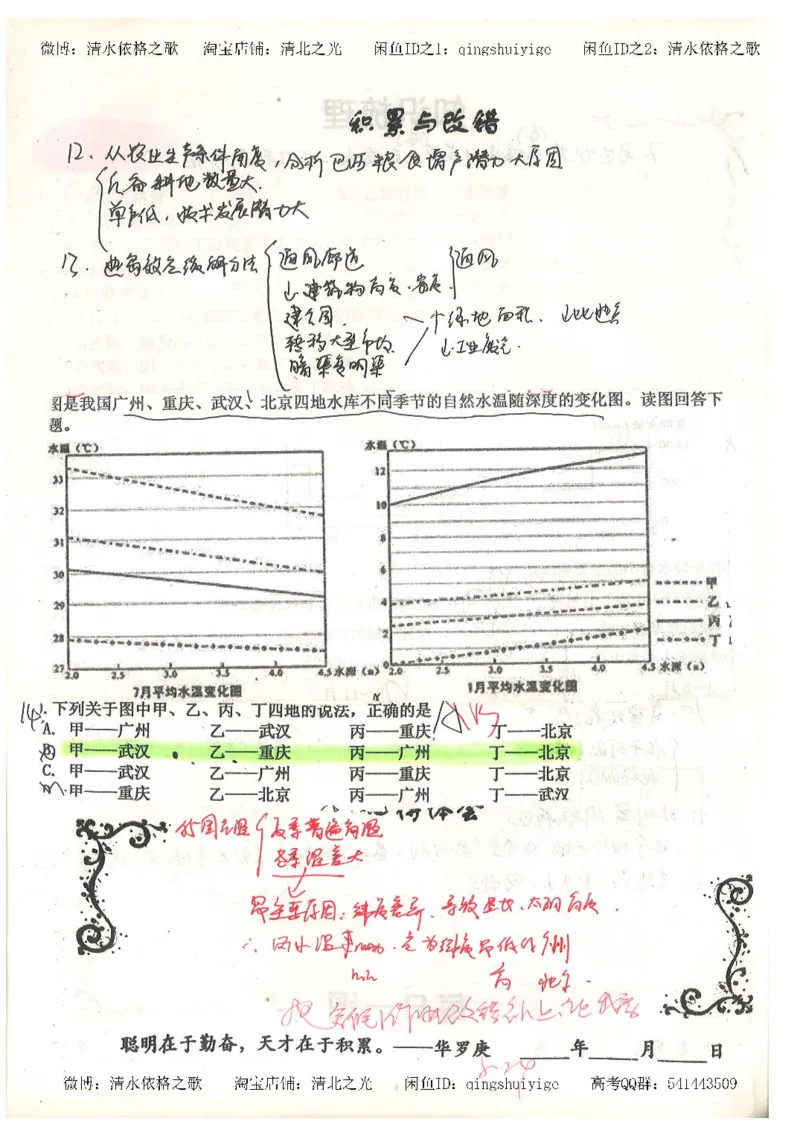 微博：清水依格之歌 淘宝店铺：清北之光 闲鱼ID之1：qingshuiyige 闲鱼ID之2：清水依格之歌
积累与改错
12、从农业生产条件角度，分析巴西粮食增产潜力大原因
后备耕地数量大
单产低，技术发展潜力大
通风廊道 通风
↓建筑物高度、密度
↑绿地面积
图是我国广州、重庆、武汉、北京四地水库不同季节的自然水温随深度的变化图。读图回答下
题。
水温（℃） 水温（℃）
33 12
32 10
31 8
30 6
29 4
28 2
27 0
甲
乙
丙
丁
2.0 2.5 3.0 3.5 4.0 4.5 水深（m） 2.0 2.5 3.0 3.5 4.0 4.5 水深（m）
7月平均水温变化图 1月平均水温变化图
14. 下列关于图中甲、乙、丙、丁四地的说法，正确的是
A. 甲——广州 乙——武汉 丙——重庆 丁——北京
B. 甲——武汉 乙——重庆 丙——广州 丁——北京
C. 甲——武汉 乙——广州 丙——重庆 丁——北京
D. 甲——重庆 乙——北京 丙——广州 丁——武汉
我国气温 夏季普遍高温
冬季温差大
最主要原因：纬度差异，导致昼长、太阳高度
聪明在于勤奋，天才在于积累。——华罗庚 ____年____月____日
5.24
微博：清水依格之歌 淘宝店铺：清北之光 闲鱼ID：qingshuiyige 高考QQ群：541443509